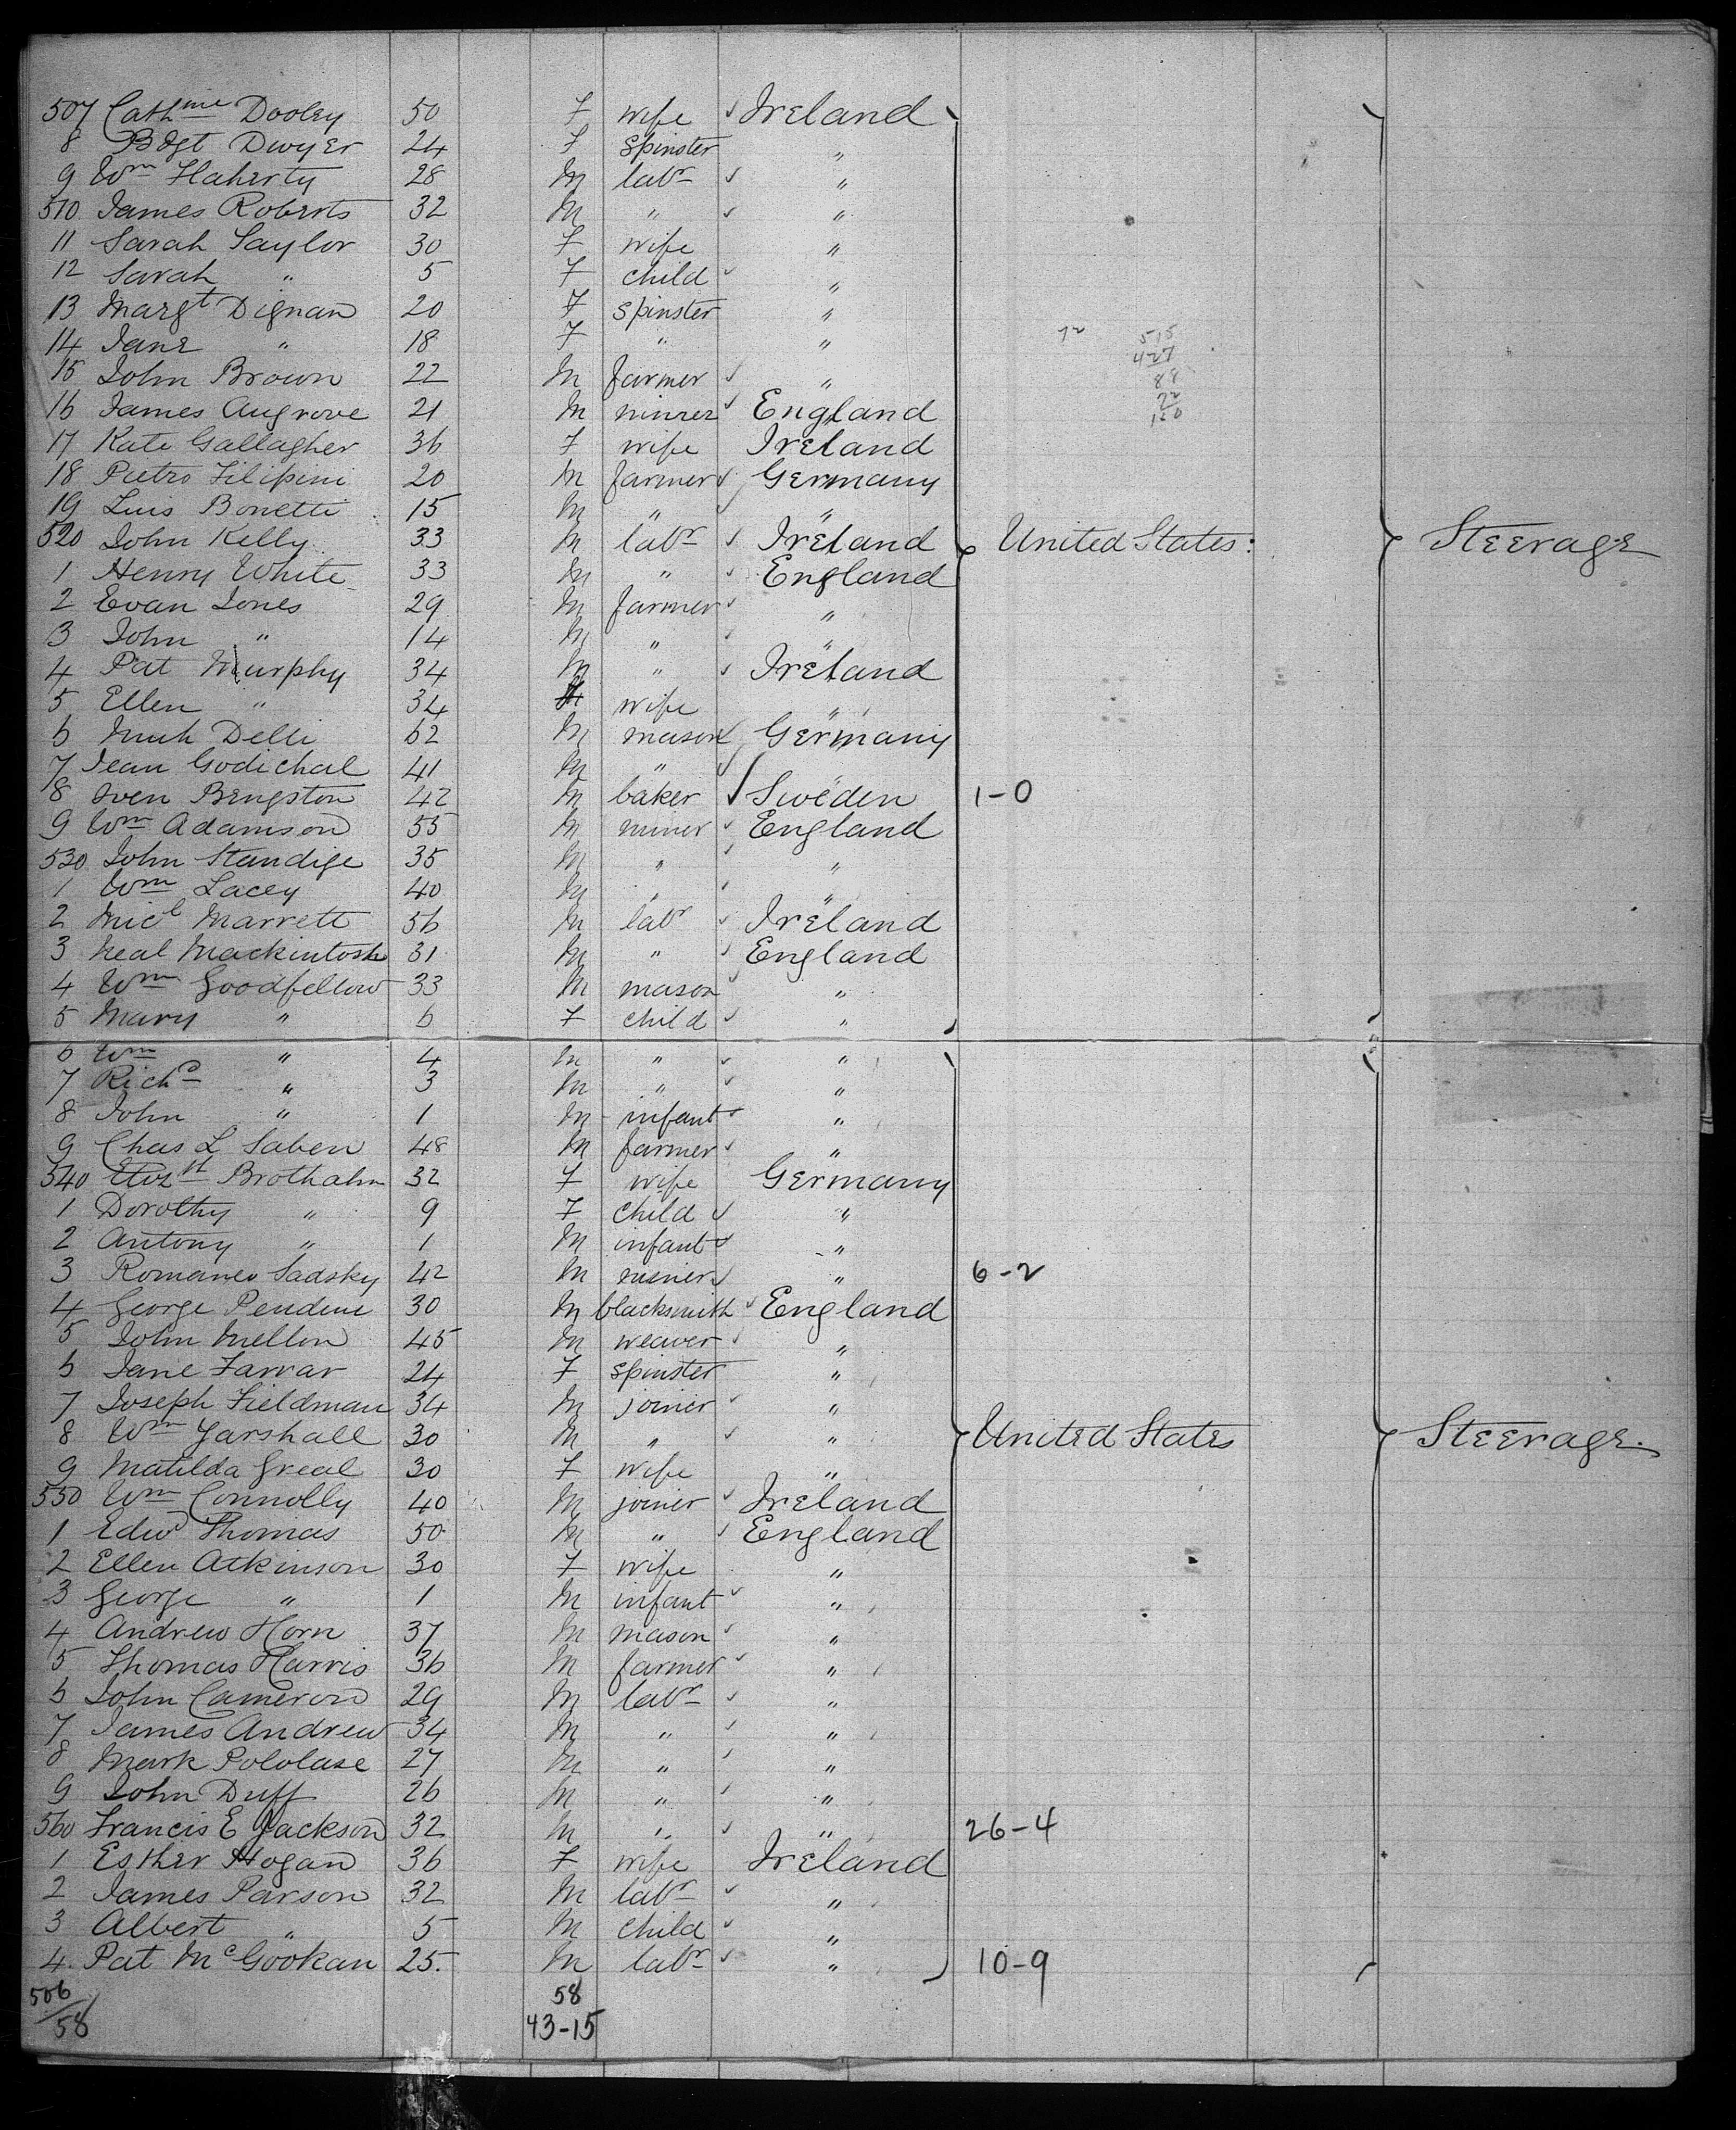 507 Cathme Dooley 50 F wife Ireland
8 Bdgt Dwyer 24 F Spinster "
9 Wm Flaherty 28 M labr "
510 James Roberts 32 M " "
11 Sarah Taylor 30 F wife "
12 Sarah " 5 F child "
13 Margt Dignan 20 F Spinster "
14 Jane " 18 F " "
15 John Brown 22 M farmer "
16 James Augrove 21 M England
17 Kate Gallagher 36 F wife Ireland
18 Pietro Filipini 20 M farmer Germany
19 Luis Bonetti 15 M " "
520 John Kelly 33 M labr Ireland United States: Steerage
1 Henry White 33 M " England
2 Evan Jones 29 M farmer "
3 John " 14 M " "
4 Pat Murphy 34 M " Ireland
5 Ellen " 34 wife "
6 Delli 62 M mason Germany
7 Jean Godichal 41 M " "
8 Sven Bengston 42 M baker Sweden 1-0
9 Wm Adamson 55 M miner England
530 John Standige 35 M " "
1 Wm Lacey 40 M " "
2 Micl Marrett 56 M labr Ireland
3 Neal Mackintosh 31 M " England
4 Wm Goodfellow 33 M mason "
5 Mary " 6 F child "
6 Wm " 4 M " "
7 Richd " 3 M " "
8 John " 1 M infant "
9 Chas L Saben 48 M farmer "
540 Brothahn 32 F wife Germany
1 Dorothy " 9 F child "
2 Antony " 1 M infant "
3 Sadsky 42 M miner " 6-2
4 George Pendine 30 M blacksmith England
5 John Mellon 45 M weaver "
6 Jane Farrar 24 F Spinster "
7 Joseph Fieldman 34 M joiner "
8 Wm Yarshall 30 M " " United States Steerage.
9 Matilda Greal 30 F wife "
550 Wm Connolly 40 M joiner Ireland
1 Edwd Thomas 50 M " England
2 Ellen Atkinson 30 F wife "
3 George " 1 M infant "
4 Andrew Horn 37 M mason "
5 Thomas Harris 36 M farmer "
6 John Cameron 29 M labr "
7 James Andrew 34 M " "
8 Mark Pololase 27 M " "
9 John Duff 26 M " "
560 Francis E Jackson 32 M " " 26-4
1 Esther Hogan 36 F wife Ireland
2 James Parson 32 M labr "
3 Albert " 5 M child "
4. Pat McGookan 25. M labr " 10-9
506 58
58 43-15
515
427
88